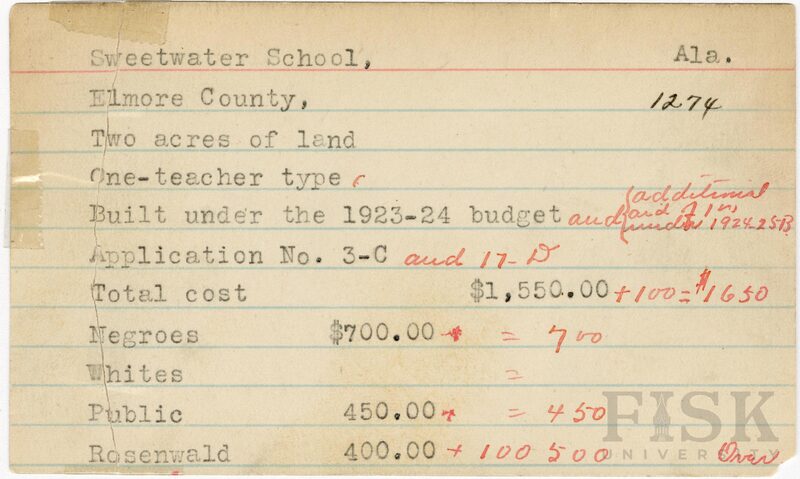 Sweetwater School, Ala.
Elmore County, 1274
Two acres of land
One-teacher type
(additional
Built under the 1923-24 budget and aid of
under 1924-25B.
Application No. 3-C and 17-D
Total cost $1,550.00 + 100 = $1650
Negroes $700.00 = 700
Whites =
Public 450.00 = 450
Rosenwald 400.00 + 100 500 Over
FISK
UNIVERSITY